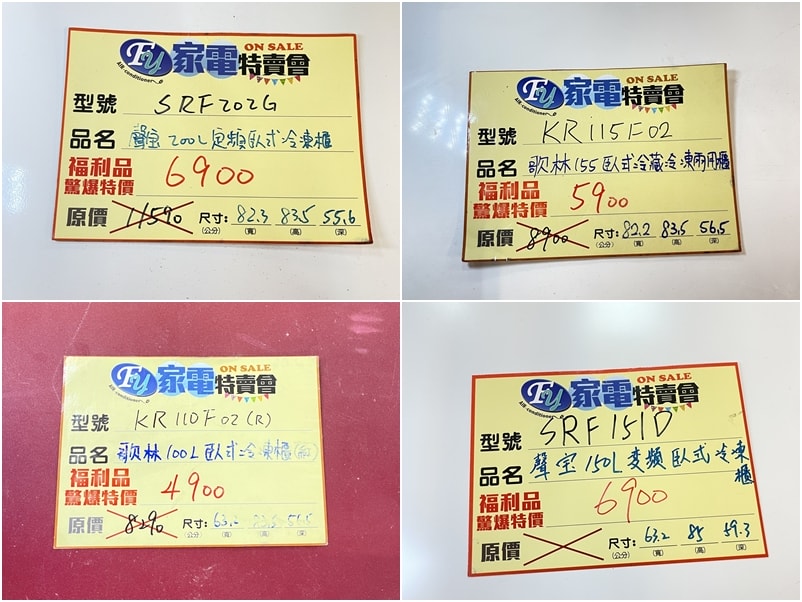 FY 家電特賣會 ON SALE
AIR-conditioner
型號 SRF202G
品名 聲宝 200L定頻臥式冷凍櫃
福利品
驚爆特價 6900
原價 11590 尺寸: 82.3 83.5 55.6
(公分) (寬) (高) (深)
FY 家電特賣會 ON SALE
AIR-conditioner
型號 KR115F02
品名 歌林155臥式冷藏冷凍兩用櫃
福利品
驚爆特價 5900
原價 8900 尺寸: 82.2 83.5 56.5
(公分) (寬) (高) (深)
FY 家電特賣會 ON SALE
AIR-conditioner
型號 KR110F02(R)
品名 歌林100L臥式冷凍櫃(紅)
福利品
驚爆特價 4900
原價 8290 尺寸: 63.2
(公分) (寬) (高) (深)
FY 家電特賣會 ON SALE
AIR-conditioner
型號 SRF151D
品名 聲宝150L变頻臥式冷凍櫃
福利品
驚爆特價 6900
原價 尺寸: 63.2 85 59.3
(公分) (寬) (高) (深)